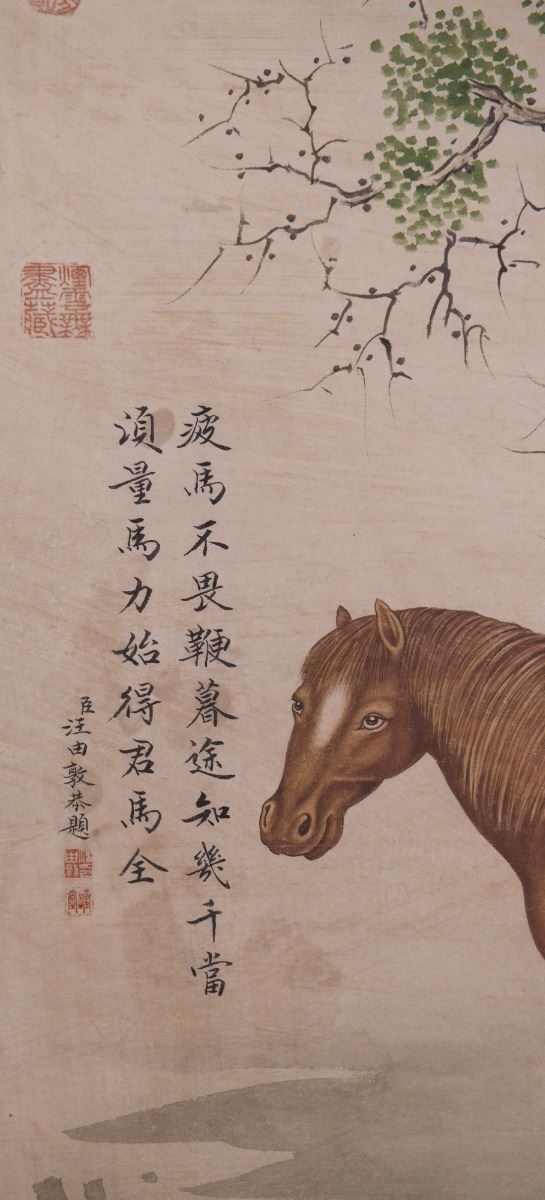 疲馬不畏鞭暮途知幾千當
須量馬力始得君馬全
臣汪由敦恭題